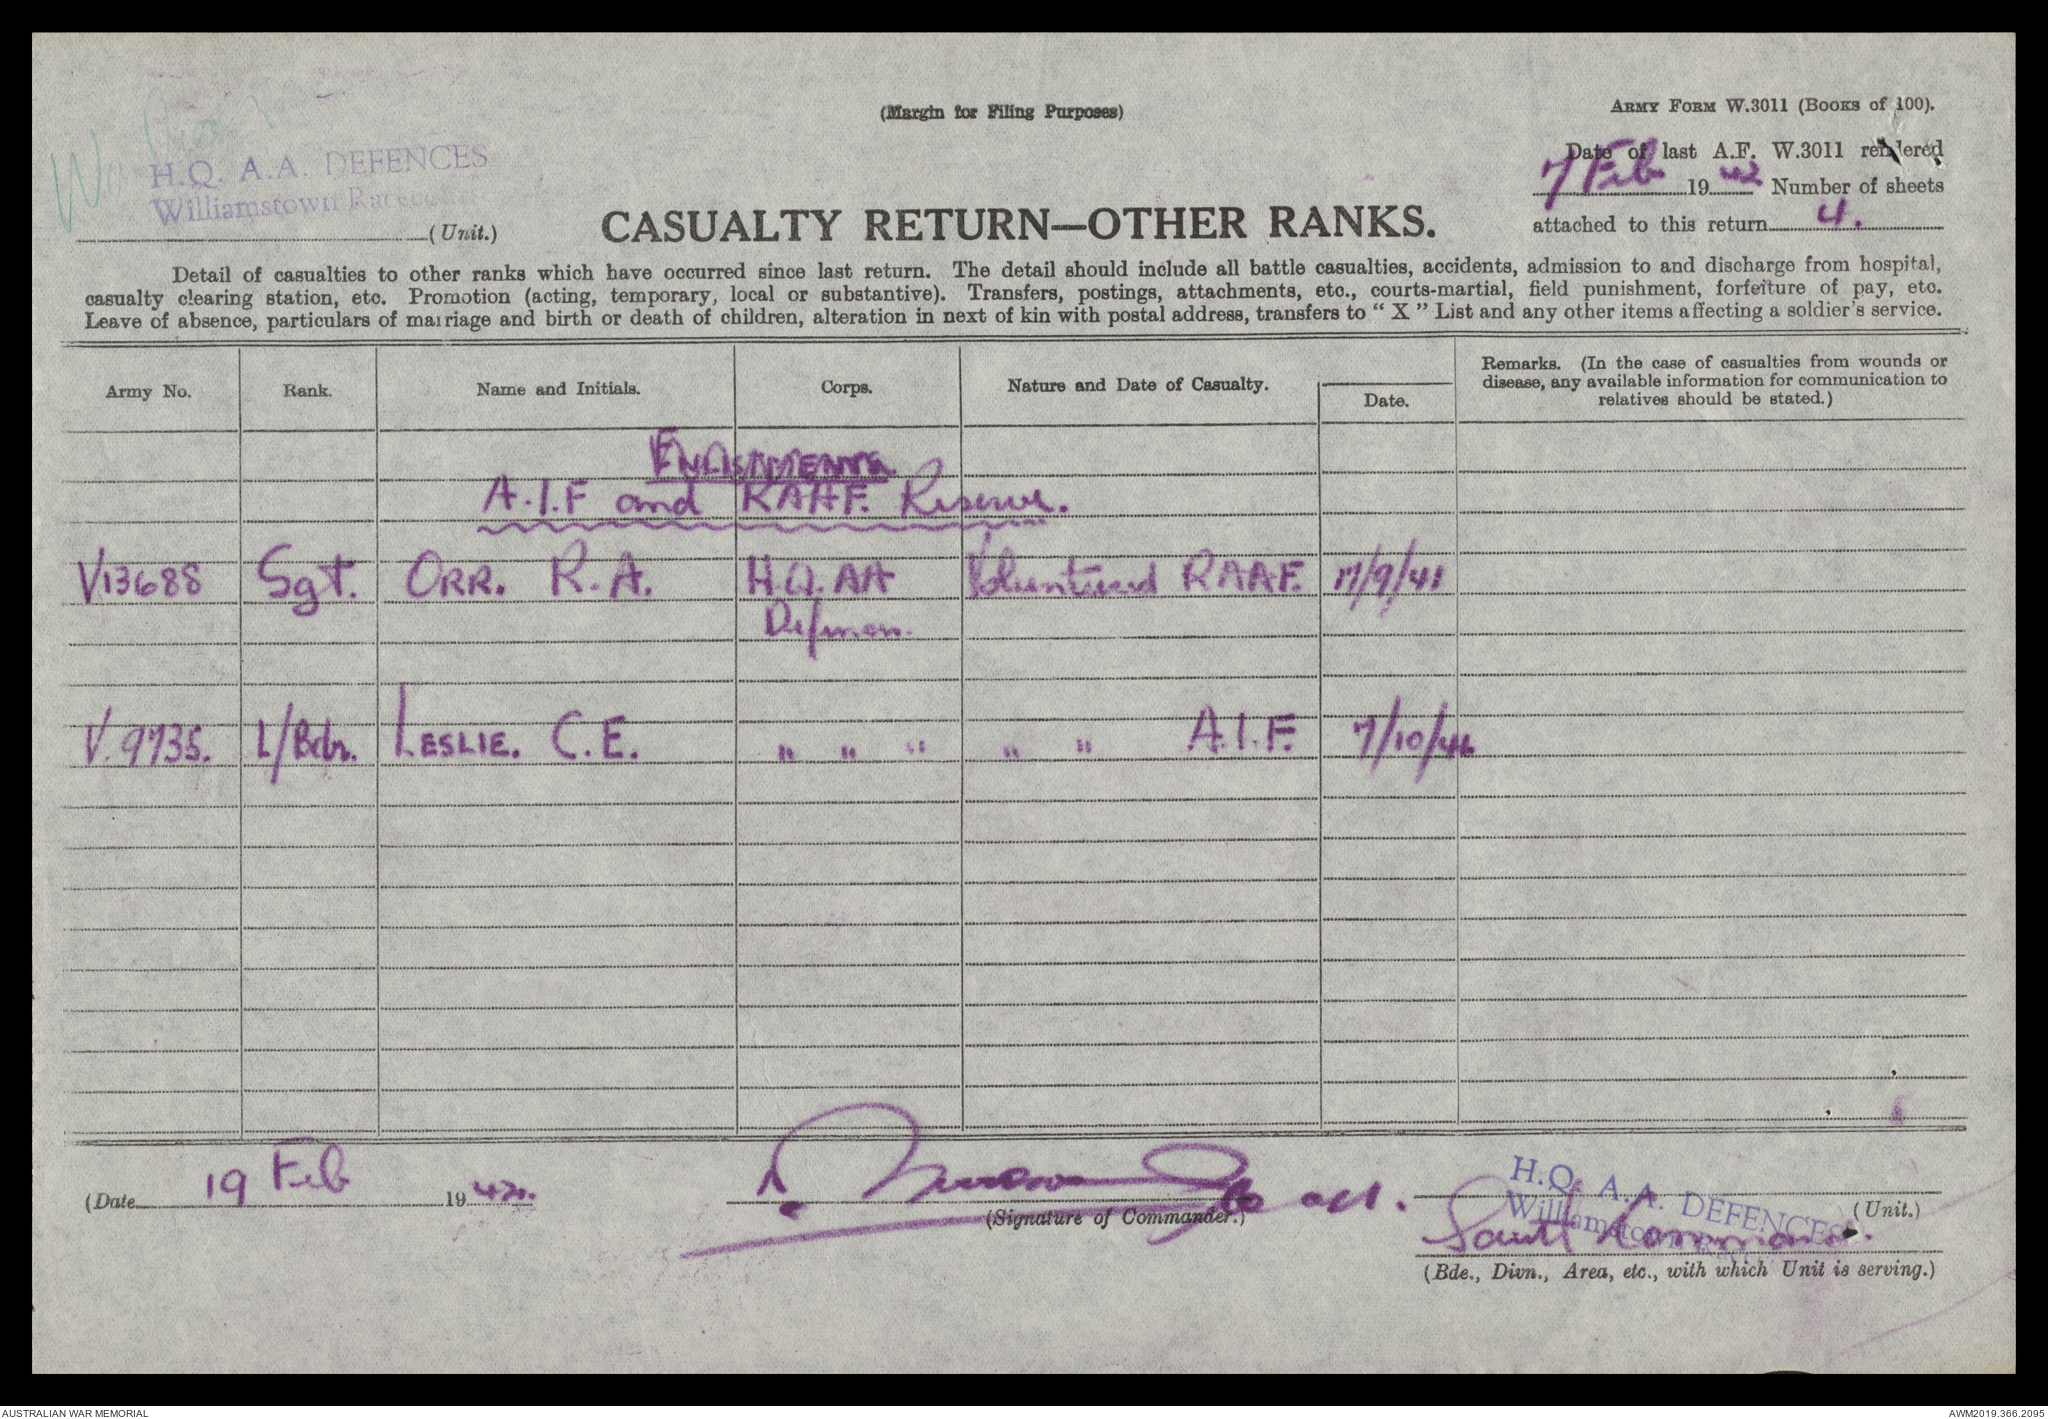 (Margin for Filing Purposes)
ARMY FORM W.3011 (BOOKS of 100).
H.Q. A.A. DEFENCES
Williamstown Racecourse
(Unit.)
Date of last A.F. W.3011 rendered
7 Feb 1942 Number of sheets
attached to this return 4.
CASUALTY RETURN—OTHER RANKS.
Detail of casualties to other ranks which have occurred since last return. The detail should include all battle casualties, accidents, admission to and discharge from hospital,
casualty clearing station, etc. Promotion (acting, temporary, local or substantive). Transfers, postings, attachments, etc., courts-martial, field punishment, forfeiture of pay, etc.
Leave of absence, particulars of marriage and birth or death of children, alteration in next of kin with postal address, transfers to "X" List and any other items affecting a soldier's service.
Army No. Rank. Name and Initials. Corps. Nature and Date of Casualty. Date. Remarks. (In the case of casualties from wounds or
disease, any available information for communication to
relatives should be stated.)
ENLISTMENTS
A.I.F and RAAF. Reserve.
V13688 Sgt. ORR. R.A. H.Q. AA Volunteered RAAF. 17/9/41
Defences.
V.9735. L/Bdr. LESLIE. C.E. " " " " " A.I.F. 7/10/41.
(Date 19 Feb 1942.
(Signature of Commander.)
H.Q. A.A. DEFENCES
Williamstown
(Unit.)
South Command.
(Bde., Divn., Area, etc., with which Unit is serving.)
AUSTRALIAN WAR MEMORIAL
AWM2019.366.2095